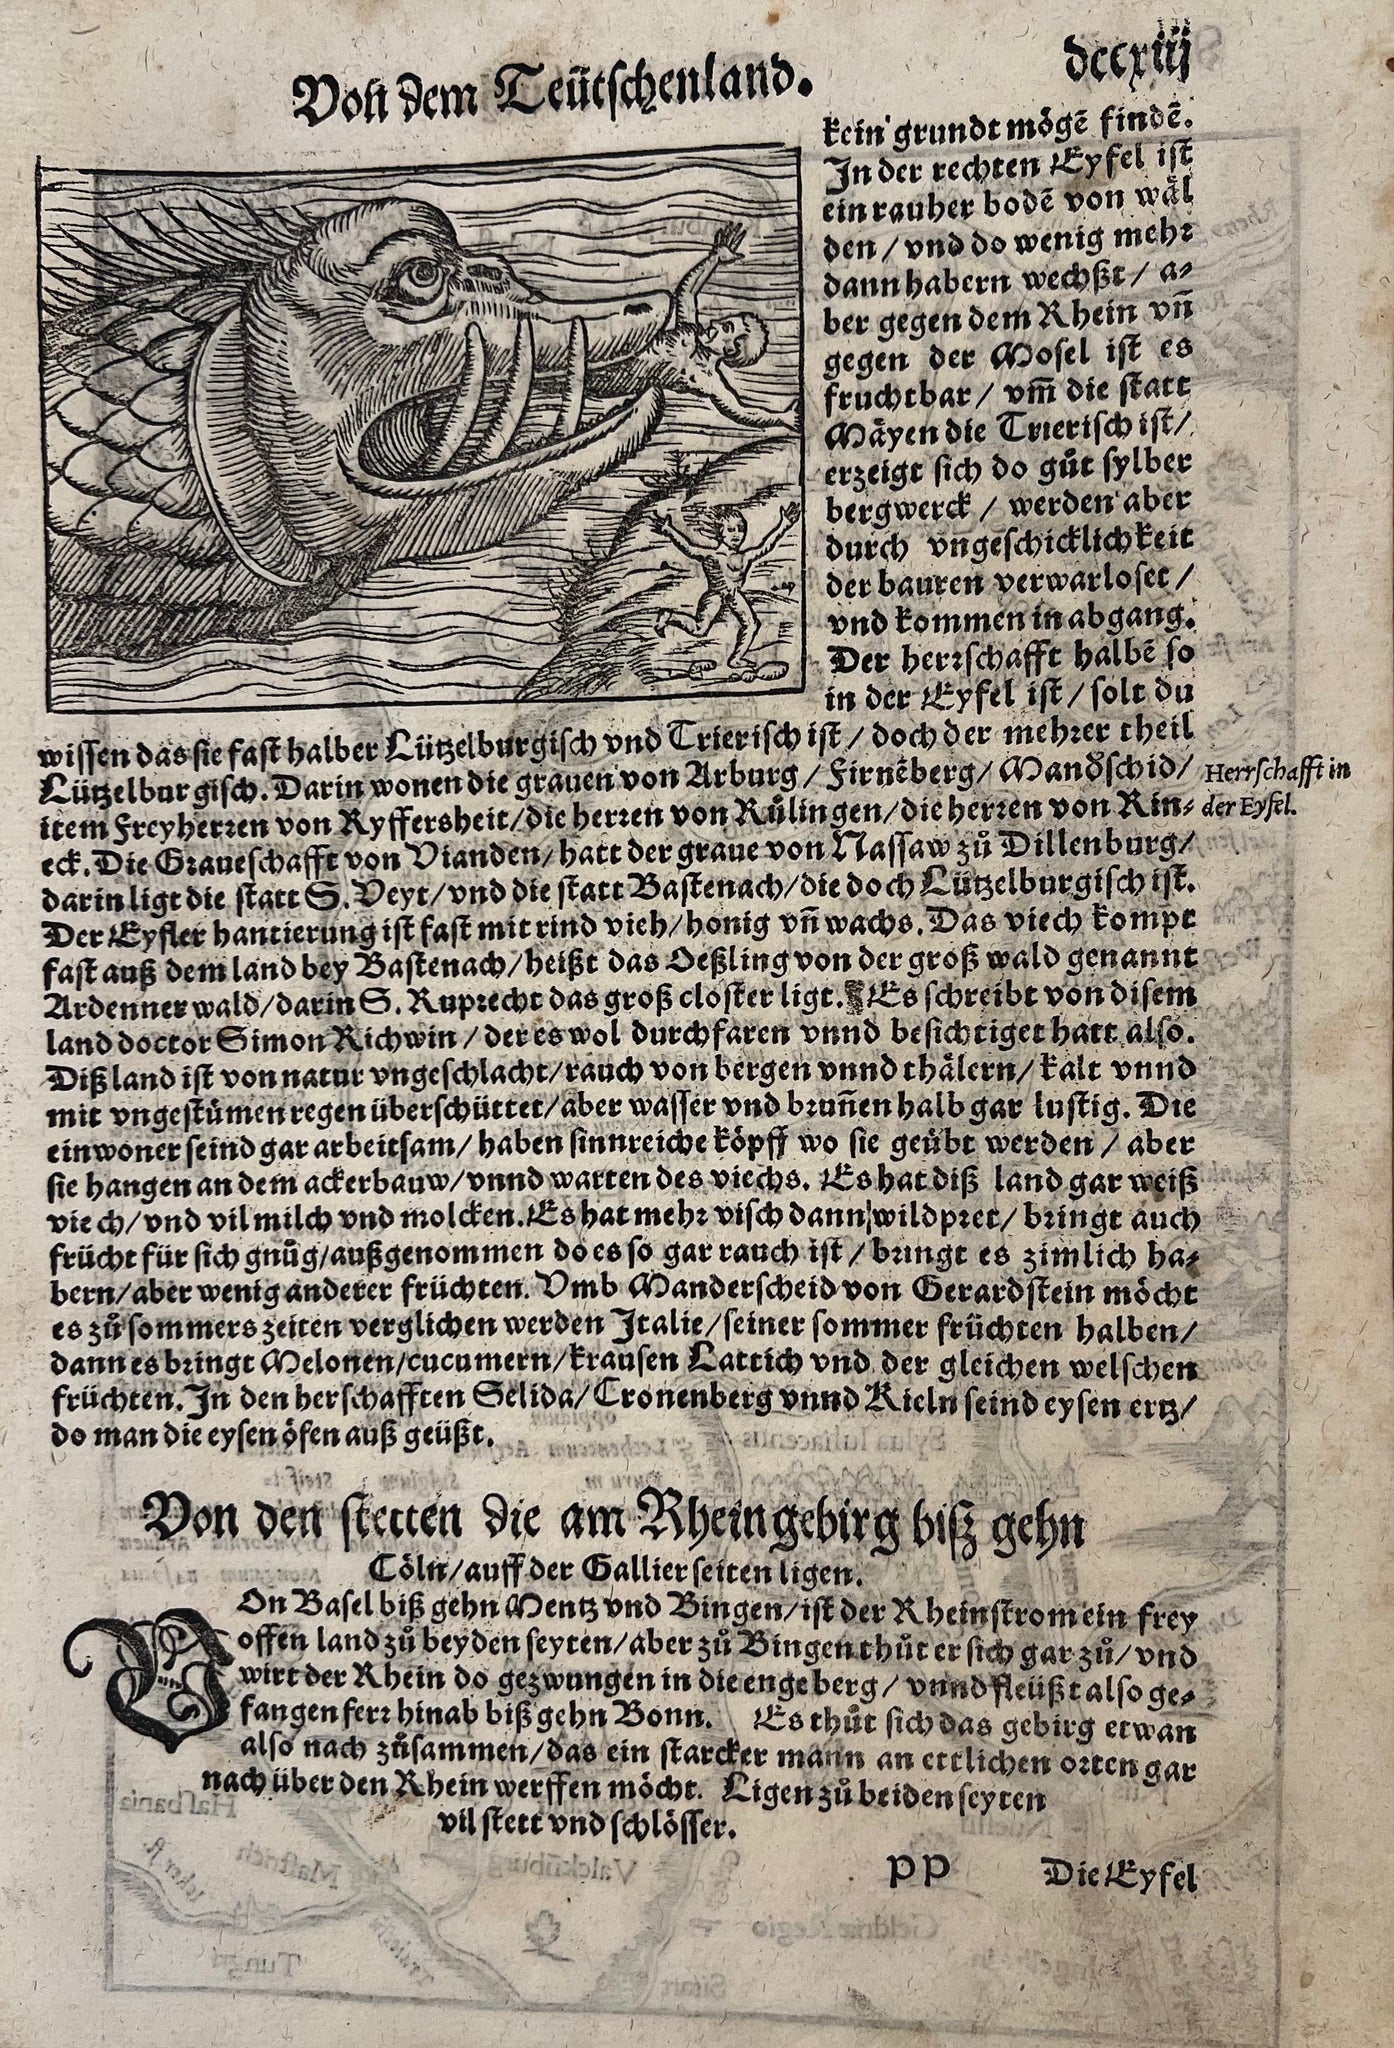 Von dem Teütschenland.
dccxiij
kein grundt mögē findē.
In der rechten Eyfel ist
ein rauher bodē von wäl
den / vnd do wenig mehr
dann habern wechßt / a⸗
ber gegen dem Rhein vñ
gegen der Mosel ist es
fruchtbar / vm̃ die statt
Mäyen die Trierisch ist /
erzeigt sich do gůt sylber
bergwerck / werden aber
durch vngeschicklichkeit
der bauren verwarloset /
vnd kommen in abgang.
Der herrschafft halbē so
in der Eyfel ist / solt du
wissen das sie fast halber Lützelburgisch vnd Trierisch ist / doch der mehrer theil
Lützelburgisch. Darin wonen die grauen von Arburg / Firnēberg / Manderschid /
Herrschafft in
der Eyfel.
item Freyherren von Ryffersheit / die herren von Růlingen / die herren von Rin⸗
eck. Die Graueschafft von Vianden / hatt der graue von Nassaw zů Dillenburg /
darin ligt die statt S. Veyt / vnd die statt Bastenach / die doch Lützelburgisch ist.
Der Eyfler hantierung ist fast mit rind vieh / honig vñ wachs. Das viech kompt
fast auß dem land bey Bastenach / heißt das Oeßling von der groß wald genannt
Ardenner wald / darin S. Ruprecht das groß closter ligt. Es schreibt von disem
land doctor Simon Richwin / der es wol durchfaren vnnd besichtiget hatt also.
Diß land ist von natur vngeschlacht / rauch von bergen vnnd thälern / kalt vnnd
mit vngestümen regen überschüttet / aber wasser vnd bruñen halb gar lustig. Die
einwoner seind gar arbeitsam / haben sinnreiche köpff wo sie geübt werden / aber
sie hangen an dem ackerbauw / vnnd warten des viechs. Es hat diß land gar weiß
viech / vnd vil milch vnd molcken. Es hat mehr visch dann wildpret / bringt auch
frücht für sich gnůg / außgenommen do es so gar rauch ist / bringt es zimlich ha⸗
bern / aber wenig anderer früchten. Vmb Manderscheid von Gerardstein möcht
es zů sommers zeiten verglichen werden Italie / seiner sommer früchten halben /
dann es bringt Melonen / cucumern / krausen Lattich vnd der gleichen welschen
früchten. In den herschafften Selida / Cronenberg vnnd Kieln seind eysen ertz /
do man die eysen öfen auß geüßt.
Von den stetten die am Rhein gebirg biß gehn
Cöln / auff der Gallier seiten ligen.
VOn Basel biß gehn Mentz vnd Bingen / ist der Rheinstrom ein frey
offen land zů beyden seyten / aber zů Bingen thůt er sich gar zů / vnd
wirt der Rhein do gezwungen in die enge berg / vnnd fleüßt also ge⸗
fangen ferr hinab biß gehn Bonn. Es thůt sich das gebirg etwan
also nach zůsammen / das ein starcker mann an ettlichen orten gar
nach über den Rhein werffen möcht. Ligen zů beiden seyten
vil stett vnd schlösser.
pp
Die Eyfel